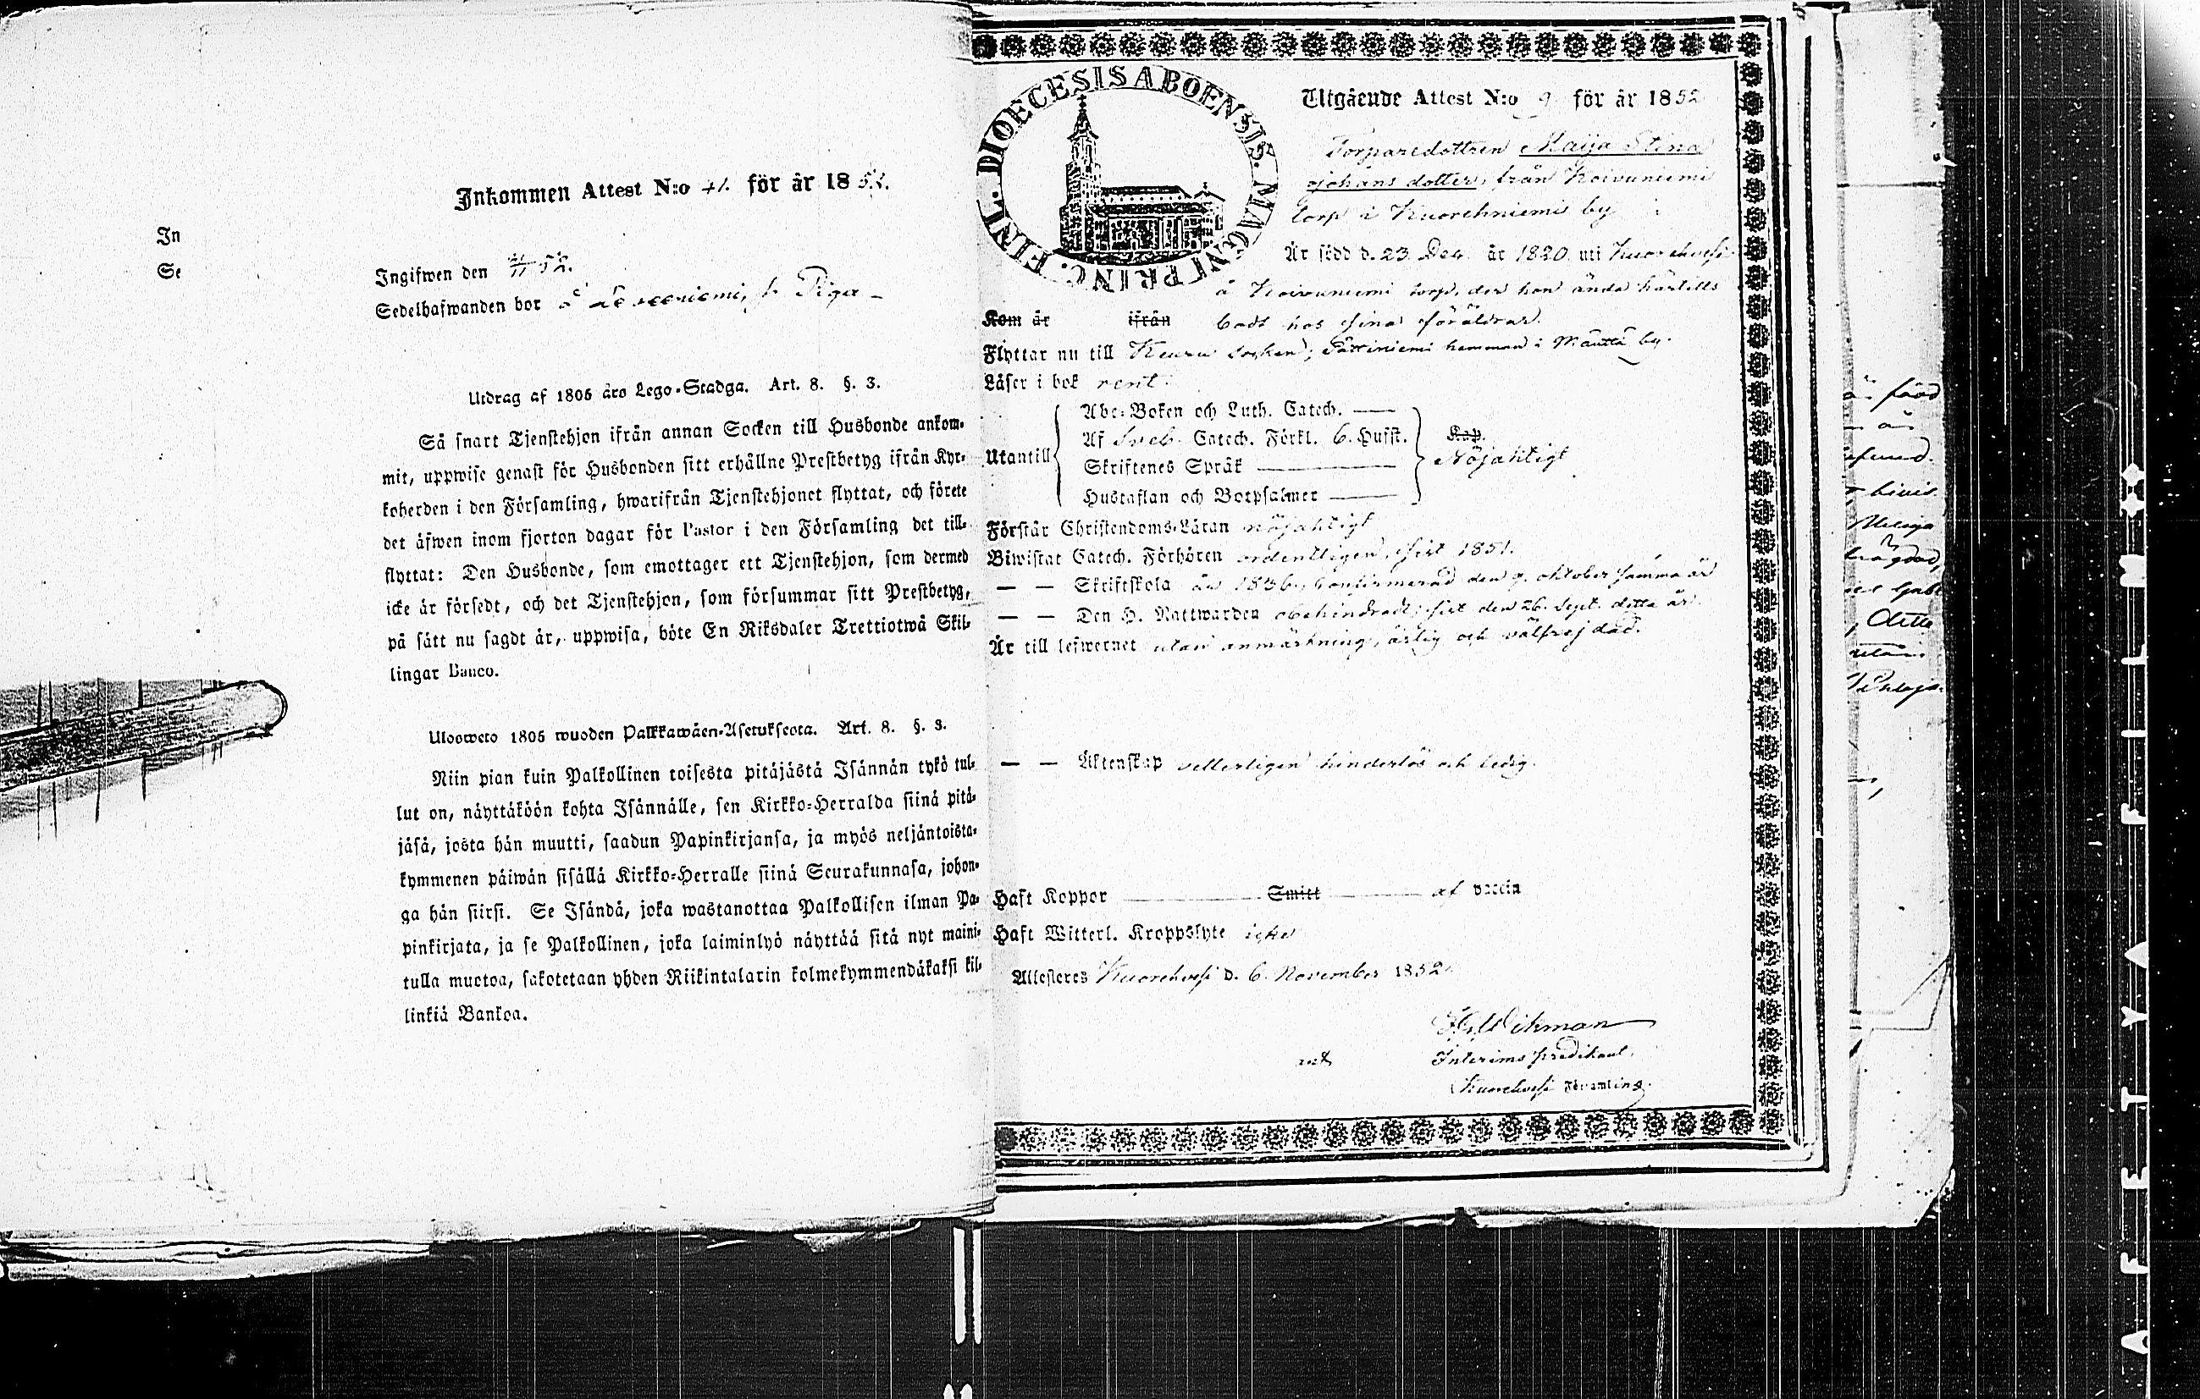 In
Se
Inkommen Attest N:o 41. för år 1852.
Ingifwen den 52.
Sedelhafwanden bor Piga
Utdrag af 1805 års Lego-Stadga. Art. 8. §. 3.
Så snart Tjenstehjon ifrån annan Socken till Husbonde ankom-
mit, uppwise genast för Husbonden sitt erhållne Prestbetyg ifrån Kyr-
koherden i den Församling, hwarifrån Tjenstehjonet flyttat, och förete
det äfwen inom fjorton dagar för Pastor i den Församling det till-
flyttat: Den Husbonde, som emottager ett Tjenstehjon, som dermed
icke är försedt, och det Tjenstehjon, som försummar sitt Prestbetyg,
på sätt nu sagdt är, uppwisa, böte En Riksdaler Trettiotwå Skil-
lingar Banco.
Ulosweto 1805 wuoden Palkkawäen-Asetuksesta. Art. 8. §. 3.
Niin pian kuin Palkollinen toisesta pitäjästä Isännän tykö tul-
lut on, näyttäköön kohta Isännälle, sen Kirkko-Herralda siinä pitä-
jäsä, josta hän muutti, saadun Papinkirjansa, ja myös neljäntoista-
kymmenen päiwän sisällä Kirkko-Herralle siinä Seurakunnasa, johon-
ga hän siirsi. Se Isändä, joka wastanottaa Palkollisen ilman Pa-
pinkirjata, ja se Palkollinen, joka laiminlyö näyttää sitä nyt maini-
tulla muotoa, sakotetaan yhden Riikintalarin kolmekymmendäkaksi kil-
linkiä Bankoa.
FINL. DIOECESIS ABOENSIS. MAGNI PRINC.
Utgående Attest N:o 9 för år 1852
Torparedottren Maija Stina
Johans dotter, från Koivuniemi
torp i Kuorehniemi by
Är född d. 23 Dec. år 1820 uti Kuorehvesi
å Koivuniemi torp, der hon ända härtills
Kom år ifrån bott hos sina föräldrar.
Flyttar nu till Keuru socken, Pättiniemi hemman i Mänttä by.
Läser i bok rent
Utantill
Abc-Boken och Luth. Catech.
Af Sveb. Catech. Förkl. 6. Hufst. Kap.
Skriftenes Språk Nöjaktigt
Hustaflan och Botpsalmer
Förstår Christendoms-Läran nöjaktigt
Biwistat Catech. Förhören ordentligen, sist 1851.
— — Skriftskola år 1836, Confirmerad den 9. oktober samma år
— — Den H. Nattwarden obehindradt, sist den 26. Sept. detta år.
Är till lefwernet utan anmärkning, ärlig och välfrejdad.
— — Äktenskap vetterligen hinderlös och ledig.
Haft Koppor Smitt af vaccin
Haft Witterl. Kroppslyte icke
Attesteres Kuorehvesi d. 6. November 1852.
Wikman
Interims predikant
Kuorehvesi Församling.
född
Ditto
A F E T Y A F I L M